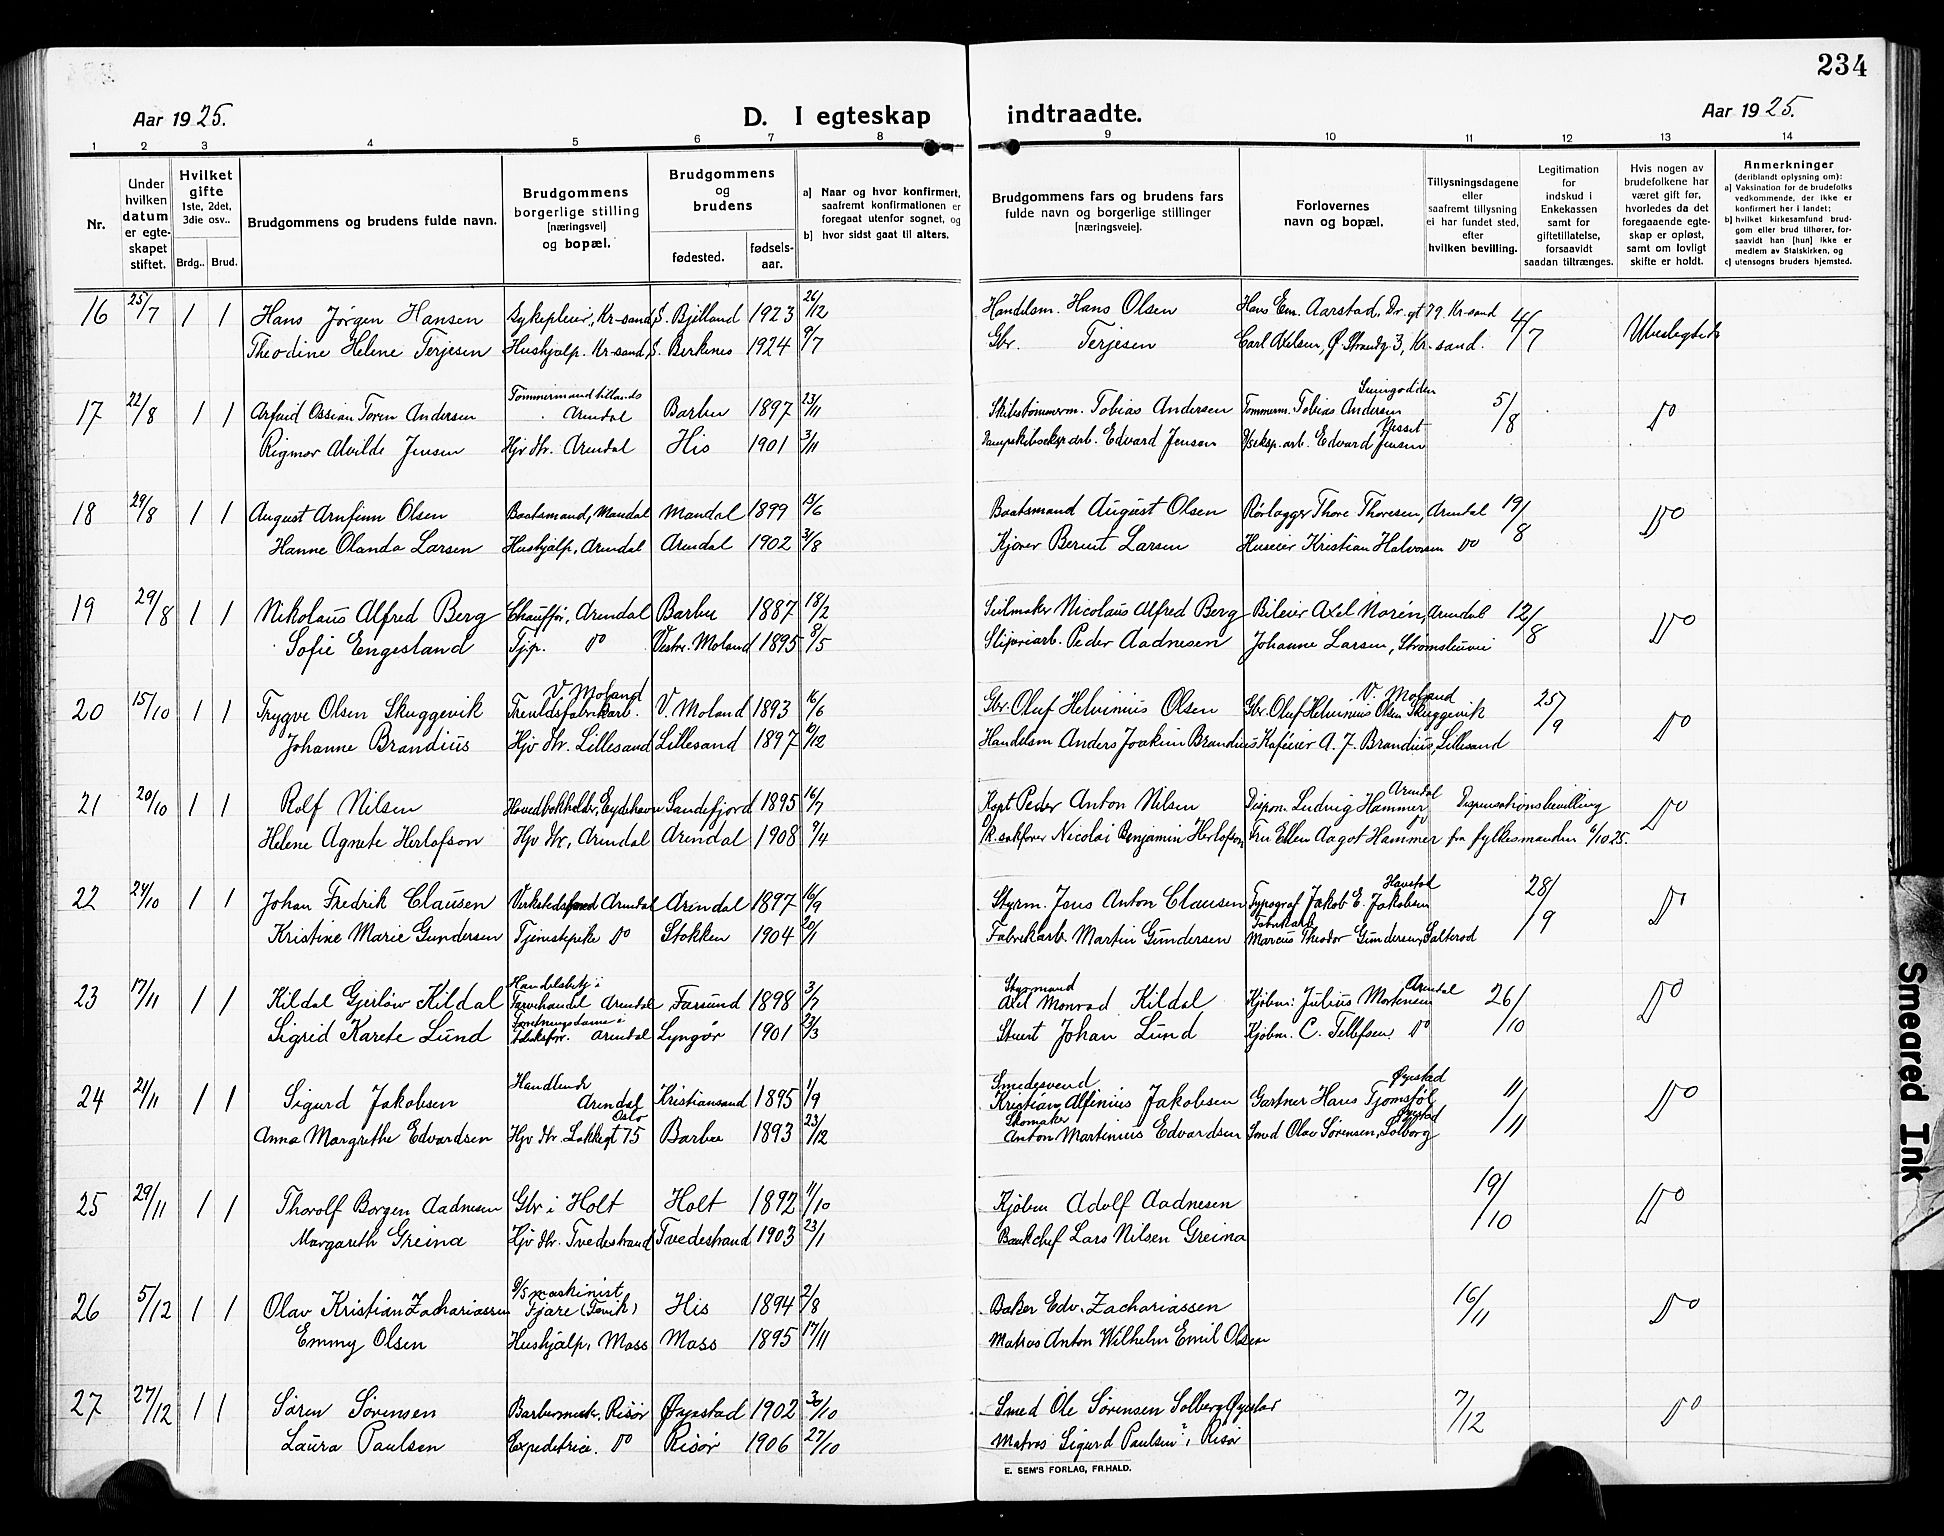 234
Aar 1925.
D. I egteskap indtraadte.
Aar 1925.
1 2 3 4 5 6 7 8 9 10 11 12 13 14
Nr.
Under hvilken datum er egteskapet stiftet.
Hvilket gifte 1ste, 2det, 3die osv..
Brdg.. Brud.
Brudgommens og brudens fulde navn.
Brudgommens borgerlige stilling [næringsvei] og bopæl.
Brudgommens og brudens
fødested. fødsels-aar.
a) Naar og hvor konfirmert, saafremt konfirmationen er foregaat utenfor sognet, og
b) hvor sidst gaat til alters.
Brudgommens fars og brudens fars fulde navn og borgerlige stillinger [næringsveie].
Forlovernes navn og bopæl.
Tillysningsdagene eller saafremt tillysning ei har fundet sted, efter hvilken bevilling.
Legitimation for indskud i Enkekassen samt for giftetillatelse, forsaavidt saadan tiltrænges.
Hvis nogen av brudefolkene har været gift før, hvorledes da det foregaaende egteskap er opløst, samt om lovligt skifte er holdt.
Anmerkninger (deriblandt oplysning om):
a) Vaksination for de brudefolks vedkommende, der ikke er konfirmert her i landet;
b) hvilket kirkesamfund brudgom eller brud tilhører, forsaavidt han [hun] ikke er medlem av Statskirken, og
c) utensogns bruders hjemsted.
16 25/7 1 1 Hans Jørgen Hansen Sykepleier, Kr-sand, S. Bjelland 1923 26/12 Handelsm. Hans Olsen Hans Em. Aarstad, Dr. gt 79 Kr-sand 4/7
Theodine Helene Terjesen Hushjælp. Kr-sand, Berkenes 1924 9/7 Gbr. Terjesen Carl Axelsen, Ø. Strandg. 3, Kr-sand.
17 22/8 1 1 Ossian Toren Andersen Arendal Barbu 1897 23/11 Tobias Andersen Tømmerm. Tobias Andersen 5/8 Do
Rigmor Alvilde Jensen Hjv. dtr. Arendal His 1901 3/11 Edvard Jensen Edvard Jensen
18 29/8 1 1 August Arnfinn Olsen Baatsmand, Mandal Mandal 1899 13/6 Baatsmand August Olsen Rørlægger Thore Thoresen, Arendal 19/8 Do
Hanne Olanda Larsen Hushjælp, Arendal Arendal 1902 3/8 Kjører Bernt Larsen Huseier Kristian Halvorsen Do
19 29/8 1 1 Nikolaus Alfred Berg Chauffør, Arendal Barbu 1887 18/2 Seilmaker Nicolaus Alfred Berg Bileier Axel Norén, Arendal 12/8 Do
Sofie Engesland Tjp. Do Vestre. Moland 1895 8/5 Sliperiarb. Peder Aadnesen Johanne Larsen,
20 15/10 1 1 Trygve Olsen Skuggevik V. Moland V. Moland 1893 16/6 Gbr. Oluf Helvinius Olsen Gbr. Oluf Helvinius Olsen Skuggevik V. Moland 25/9 Do
Johanne Brandius Hjv. dtr. Lillesand Lillesand 1897 12/12 Handelsm Anders Joakim Brandius Kaféeier A. J. Brandius, Lillesand
21 20/10 1 1 Rolf Nilsen Hovedbokholder, Eydehavn Sandefjord 1895 16/7 Kapt Peder Anton Nilsen Dispon. Ludvig Hammer Arendal Dispensationsbevilling Do
Helene Agnete Herlofson Hjv. dtr, Arendal Arendal 1908 9/4 O.R. sakfører Nicolai Benjamin Herlofson Fru Ellen Aagot Hammer Do fra fylkesmanden 6/10 25.
22 24/10 1 1 Johan Fredrik Clausen Arendal Arendal 1897 16/9 Styrm. Jens Anton Clausen Typograf Jakob E. Jakobsen 28/9 Do
Kristine Marie Gundersen Tjenestepike Do Stokken 1904 20/1 Fabrikarb. Martin Gundersen Fabrikarb Marcus Theodor Gundersen, Salterød
23 17/11 1 1 Kildal Gjerløw Kildal Handelsbetj i Farvehandel Arendal Farsund 1898 3/7 Styrmand Axel Monrad Kildal Kjøbm: Julius Mortensen Arendal 26/10 Do
Sigrid Karete Lund Arendal Lyngør 1901 22/3 Stuert Johan Lund Kjøbm. C. Tellefsen. Do
24 21/11 1 1 Sigurd Jakobsen Handlende Arendal Kristiansand 1895 1/9 Smedesvend Kristian Alfinius Jakobsen Gartner Hans Tjomsføl Øyestad 1/11 Do
Anna Margrethe Edvardsen Hjv. dtr. Løkkegt 75 Oslo Barbu 1893 23/12 Skomaker Anton Martinius Edvardsen Smed Olav Sørensen, Solborg Øyestad
25 29/11 1 1 Thorolf Borgen Aadnesen Gbr i Holt Holt 1892 11/10 Kjøbm Adolf Aadnesen 19/10 Do
Margareth Greina Hjv. dtr. Tvedestrand Tvedestrand 1903 23/1 Bankchef Lars Nilsen Greina
26 5/12 1 1 Olav Kristian Zachariassen D/S maskinist Fjære (Fevik) His 1894 2/8 Baker Edv. Zachariassen 16/11 Do
Emmy Olsen Hushjælp, Moss Moss 1895 17/11 Matros Anton Wilhelm Emil Olsen
27 27/12 1 1 Søren Sørensen Barbermest. Risør Øyestad 1902 30/10 Smed Ole Sørensen Solberg Øyestad 7/12 Do
Laura Paulsen Expeditrice. Do Risør 1906 27/10 Matros Sigurd Paulsen, Risør
E. SEM'S FORLAG, FR.HALD.
Smeared Ink